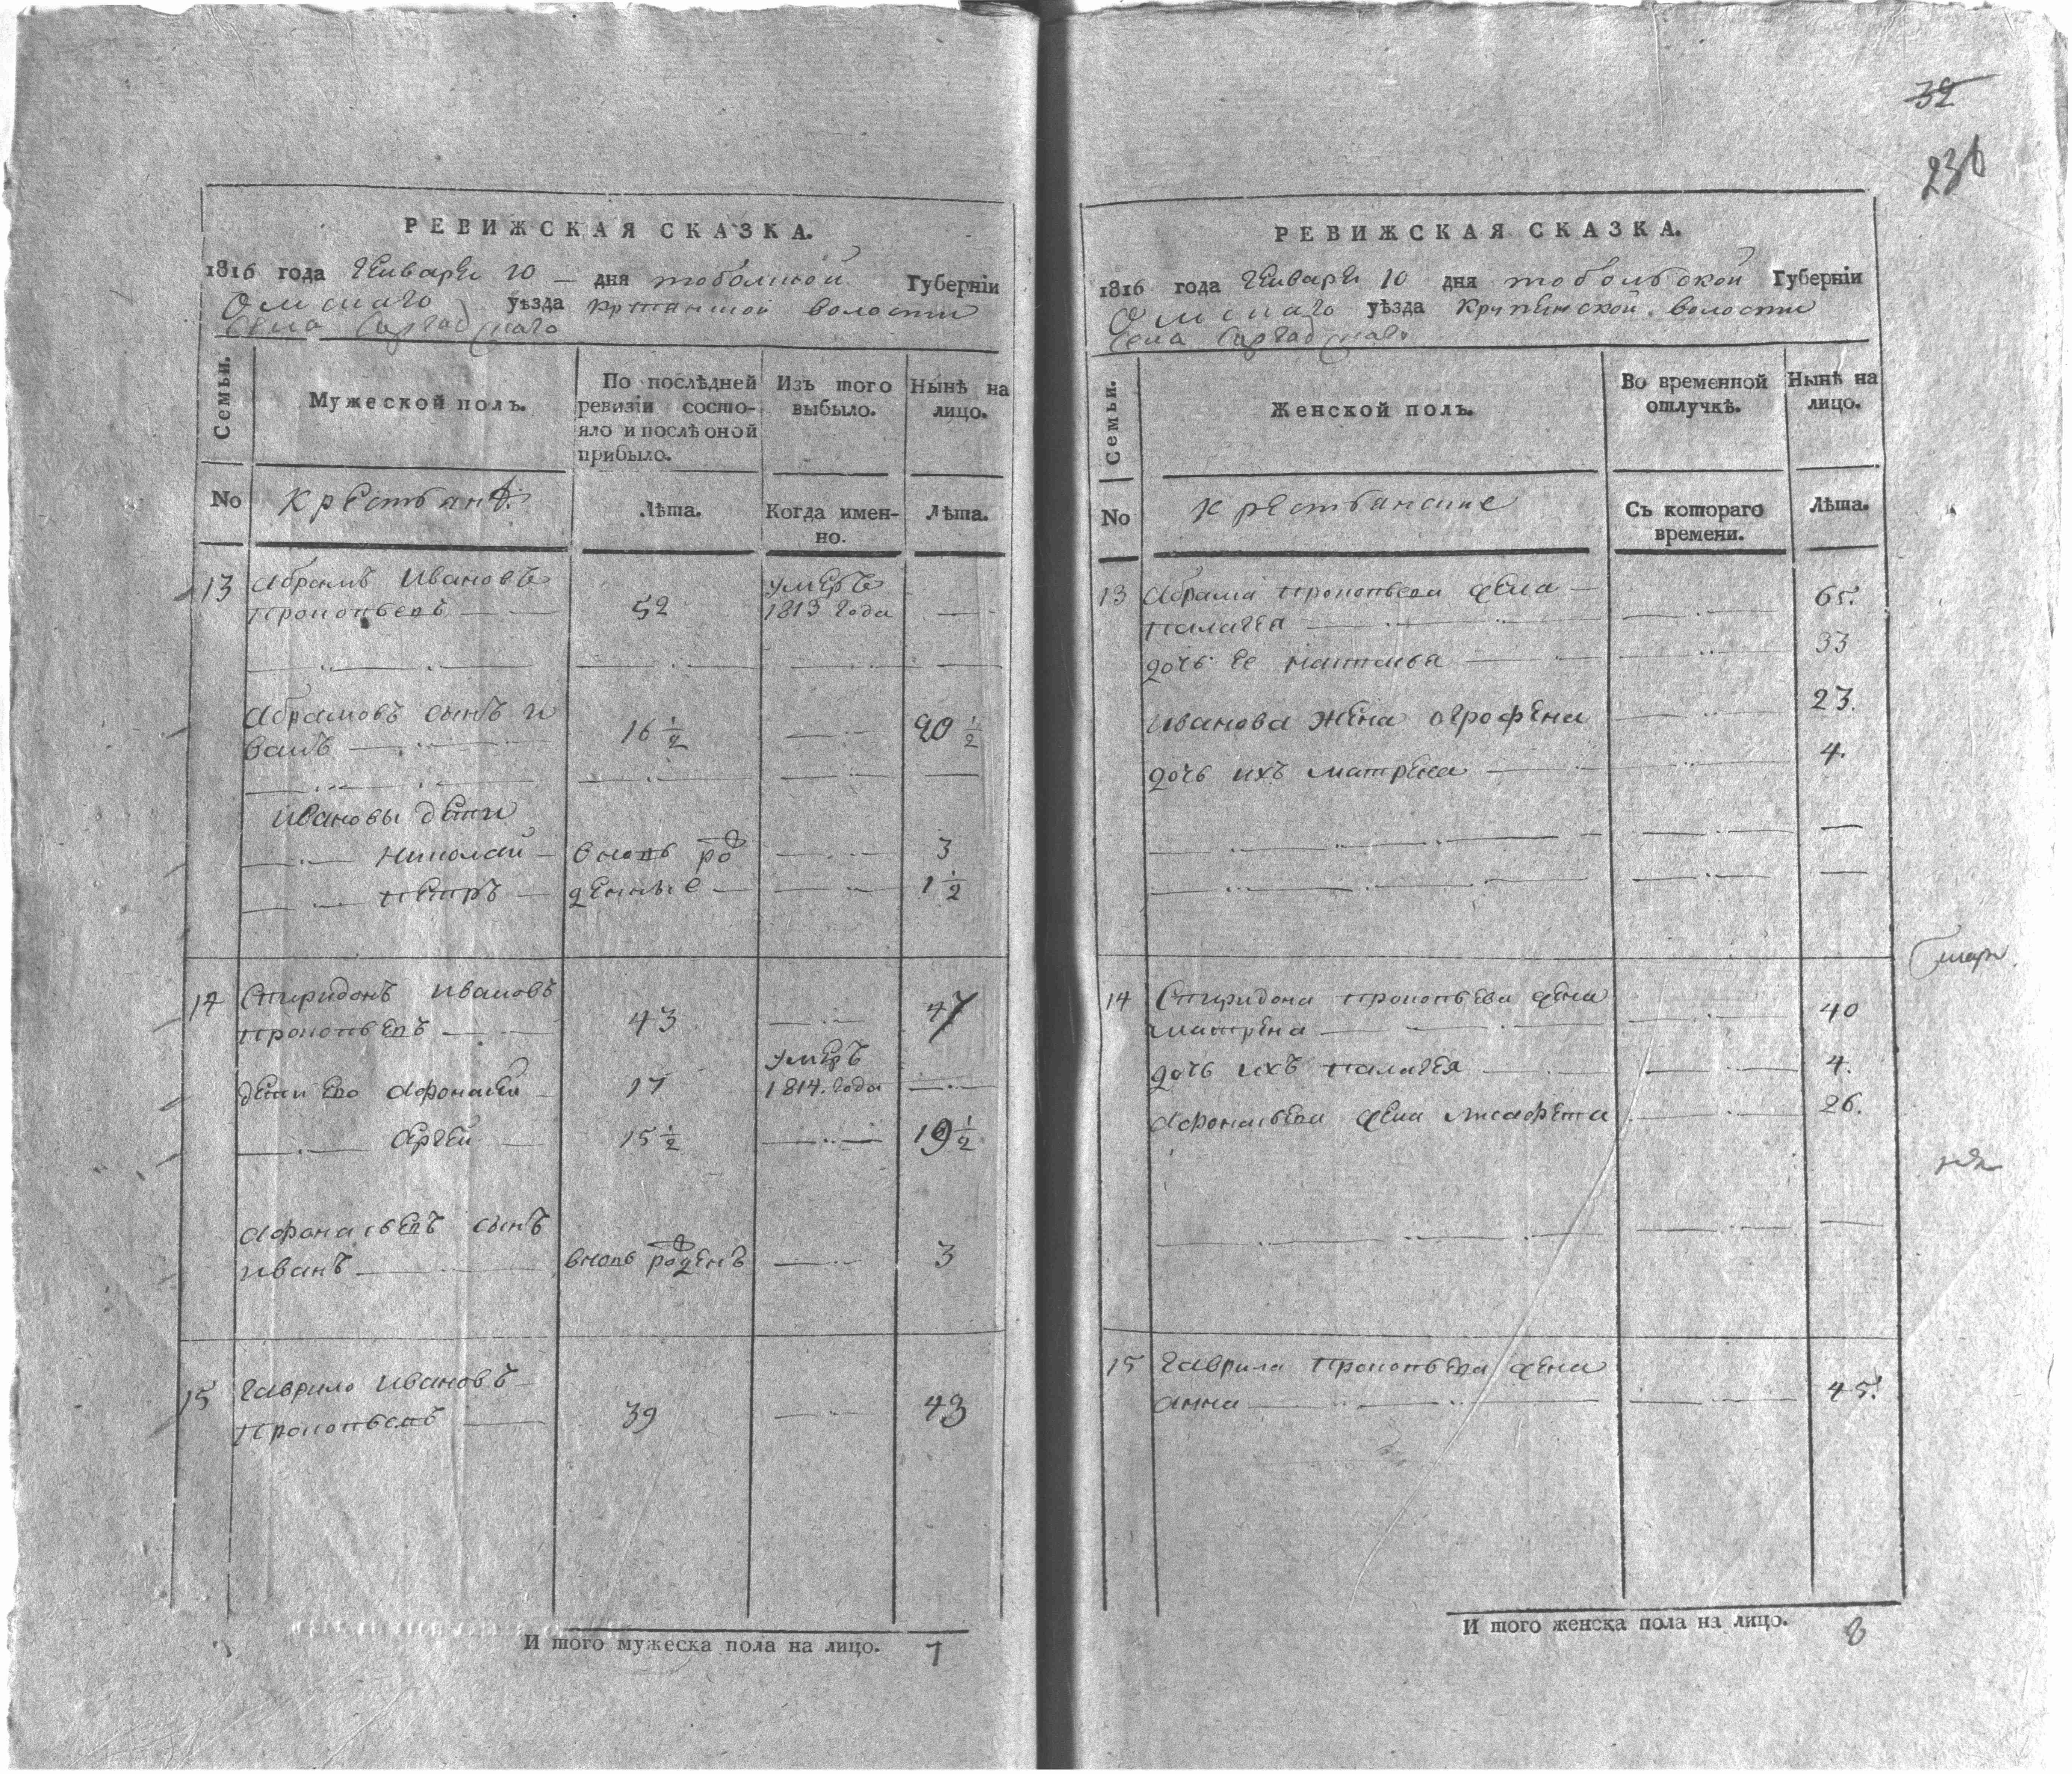 32
236
РЕВИЖСКАЯ СКАЗКА.
1816 года Генваря 10 дня тоболской Губерніи
Омскаго уѣзда Крупянской волости
Села Саргадскаго
Семьи.
Мужеской полъ.
По послѣдней
ревизіи состо-
яло и послѣ оной
прибыло.
Изъ того
выбыло.
Нынѣ на
лицо.
No
Крестьянѣ.
Лѣта.
Когда имен-
но.
Лѣта.
13 Абрамъ Ивановъ
Прокопьевъ 52 умеръ 1813 года
Абрамовъ сынъ И
ванъ 16 1/2 20 1/2
Ивановы дети
Николай вновь ро 3
Петръ жденные 1 1/2
14 Спиридонъ Ивановъ
Прокопьевъ 43 47
дети его Афонасей 17 умеръ 1814. года
Сергей 15 1/2 19 1/2
Афонасьевъ сынъ
Иванъ вновь рожденъ 3
15 Гаврило Ивановъ
Прокопьевъ 39 43
И того мужеска пола на лицо. 7
РЕВИЖСКАЯ СКАЗКА.
1816 года Генваря 10 дня тобольской Губерніи
Омскаго уѣзда Крупянской волости
Села Саргадскаго
Семьи.
Женской полъ.
Во временной
отлучкѣ.
Нынѣ на
лицо.
No
Крестьянские
Съ котораго
времени.
Лѣта.
13 Абрама Прокопьева жена
Палагея 65.
дочь ее Наталья 33
Иванова жена огрофена 23.
дочь ихъ матрена 4.
14 Спиридона Прокопьева жена
матрена 40
дочь ихъ палагея 4.
Афонасьева жена лисафета 26.
15 Гаврила Прокопьева жена
анна 45.
И того женска пола на лицо. 8